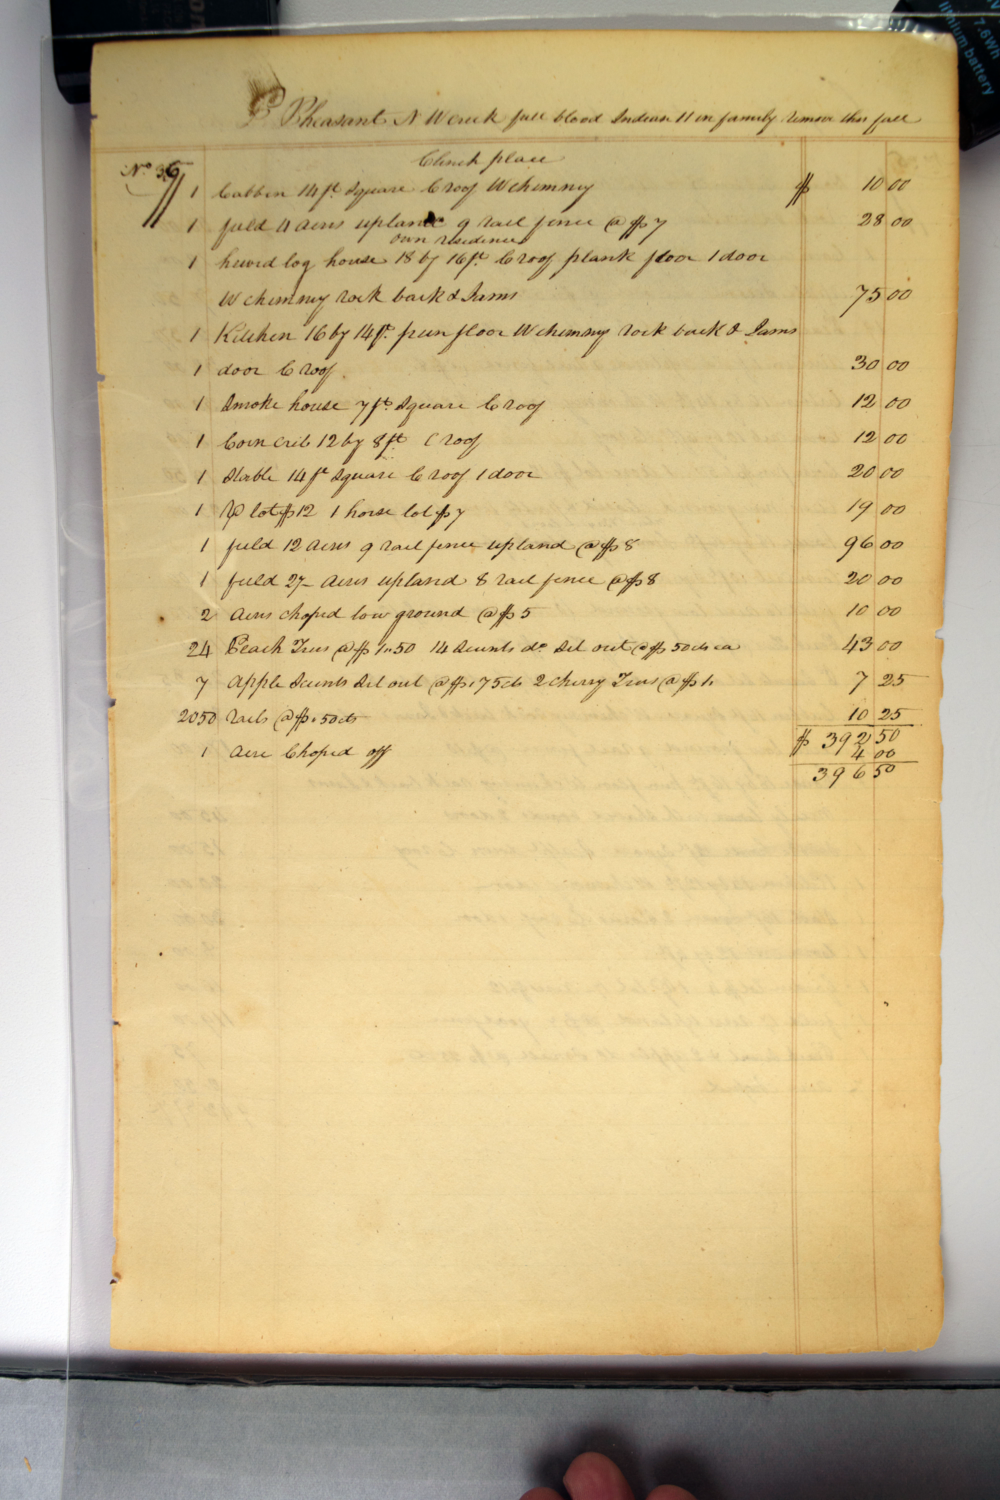 P Pheasant N W creek full blood Indian 11 in family remove this fall
No 36
Clinch place
1 Cabbin 14 ft Square C roof W chimney $ 10 00
1 field 4 acres upland 9 rail fence @ $7 28 00
own residence
1 hewed log house 18 by 16 ft C roof plank floor 1 door
W chimney rock back & Jams 75 00
1 Kitchen 16 by 14 ft. pun floor W chimney rock back & Jams
1 door C roof 30 00
1 Smoke house 7 ft Square C roof 12 00
1 Corn crib 12 by 8 ft C roof 12 00
1 Stable 14 ft Square C roof 1 door 20 00
1 lot $12 1 horse lot $7 19 00
1 field 12 acres 9 rail fence upland @ $8 96 00
1 field 2½ acres upland 8 rail fence @ $8 20 00
2 acres choped low ground @ $5 10 00
24 Peach Trees @ $1.50 14 Scients do Set out @ $ 50 cts ea 43 00
7 apple Scients Set out @ $ . 75 cts 2 cherry Trees @ $1. 7 25
2050 rails @ $ . 50 cts 10 25
$ 392 50
1 acre Choped off 4 00
396 50